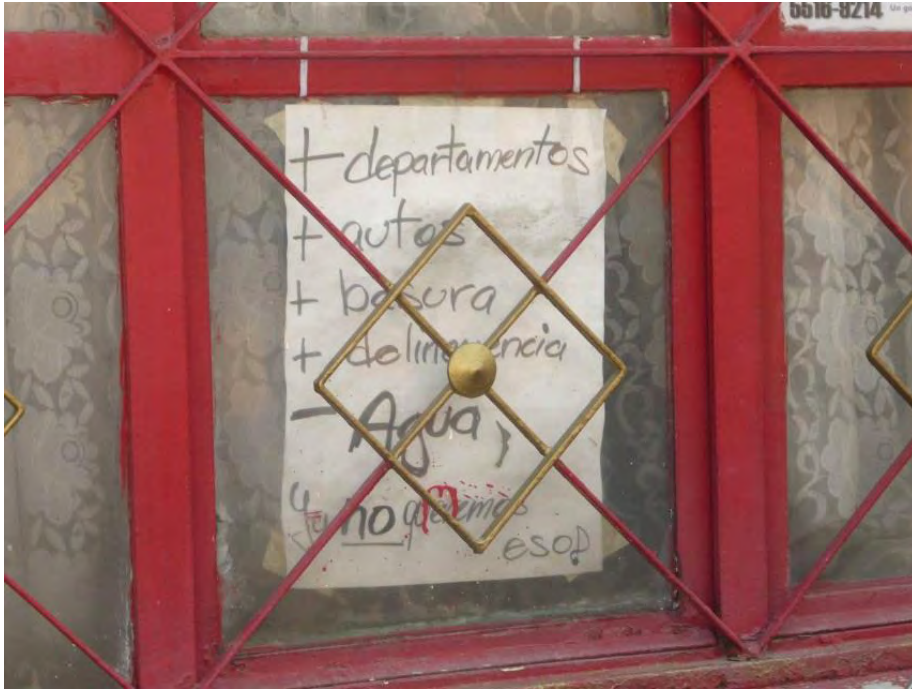 5516-8214
+ departamentos
+ autos
+ basura
+ delincuencia
- Agua,
ya no queremos
eso!